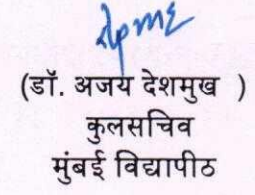 (डॉ. अजय देशमुख )
कुलसचिव
मुंबई विद्यापीठ